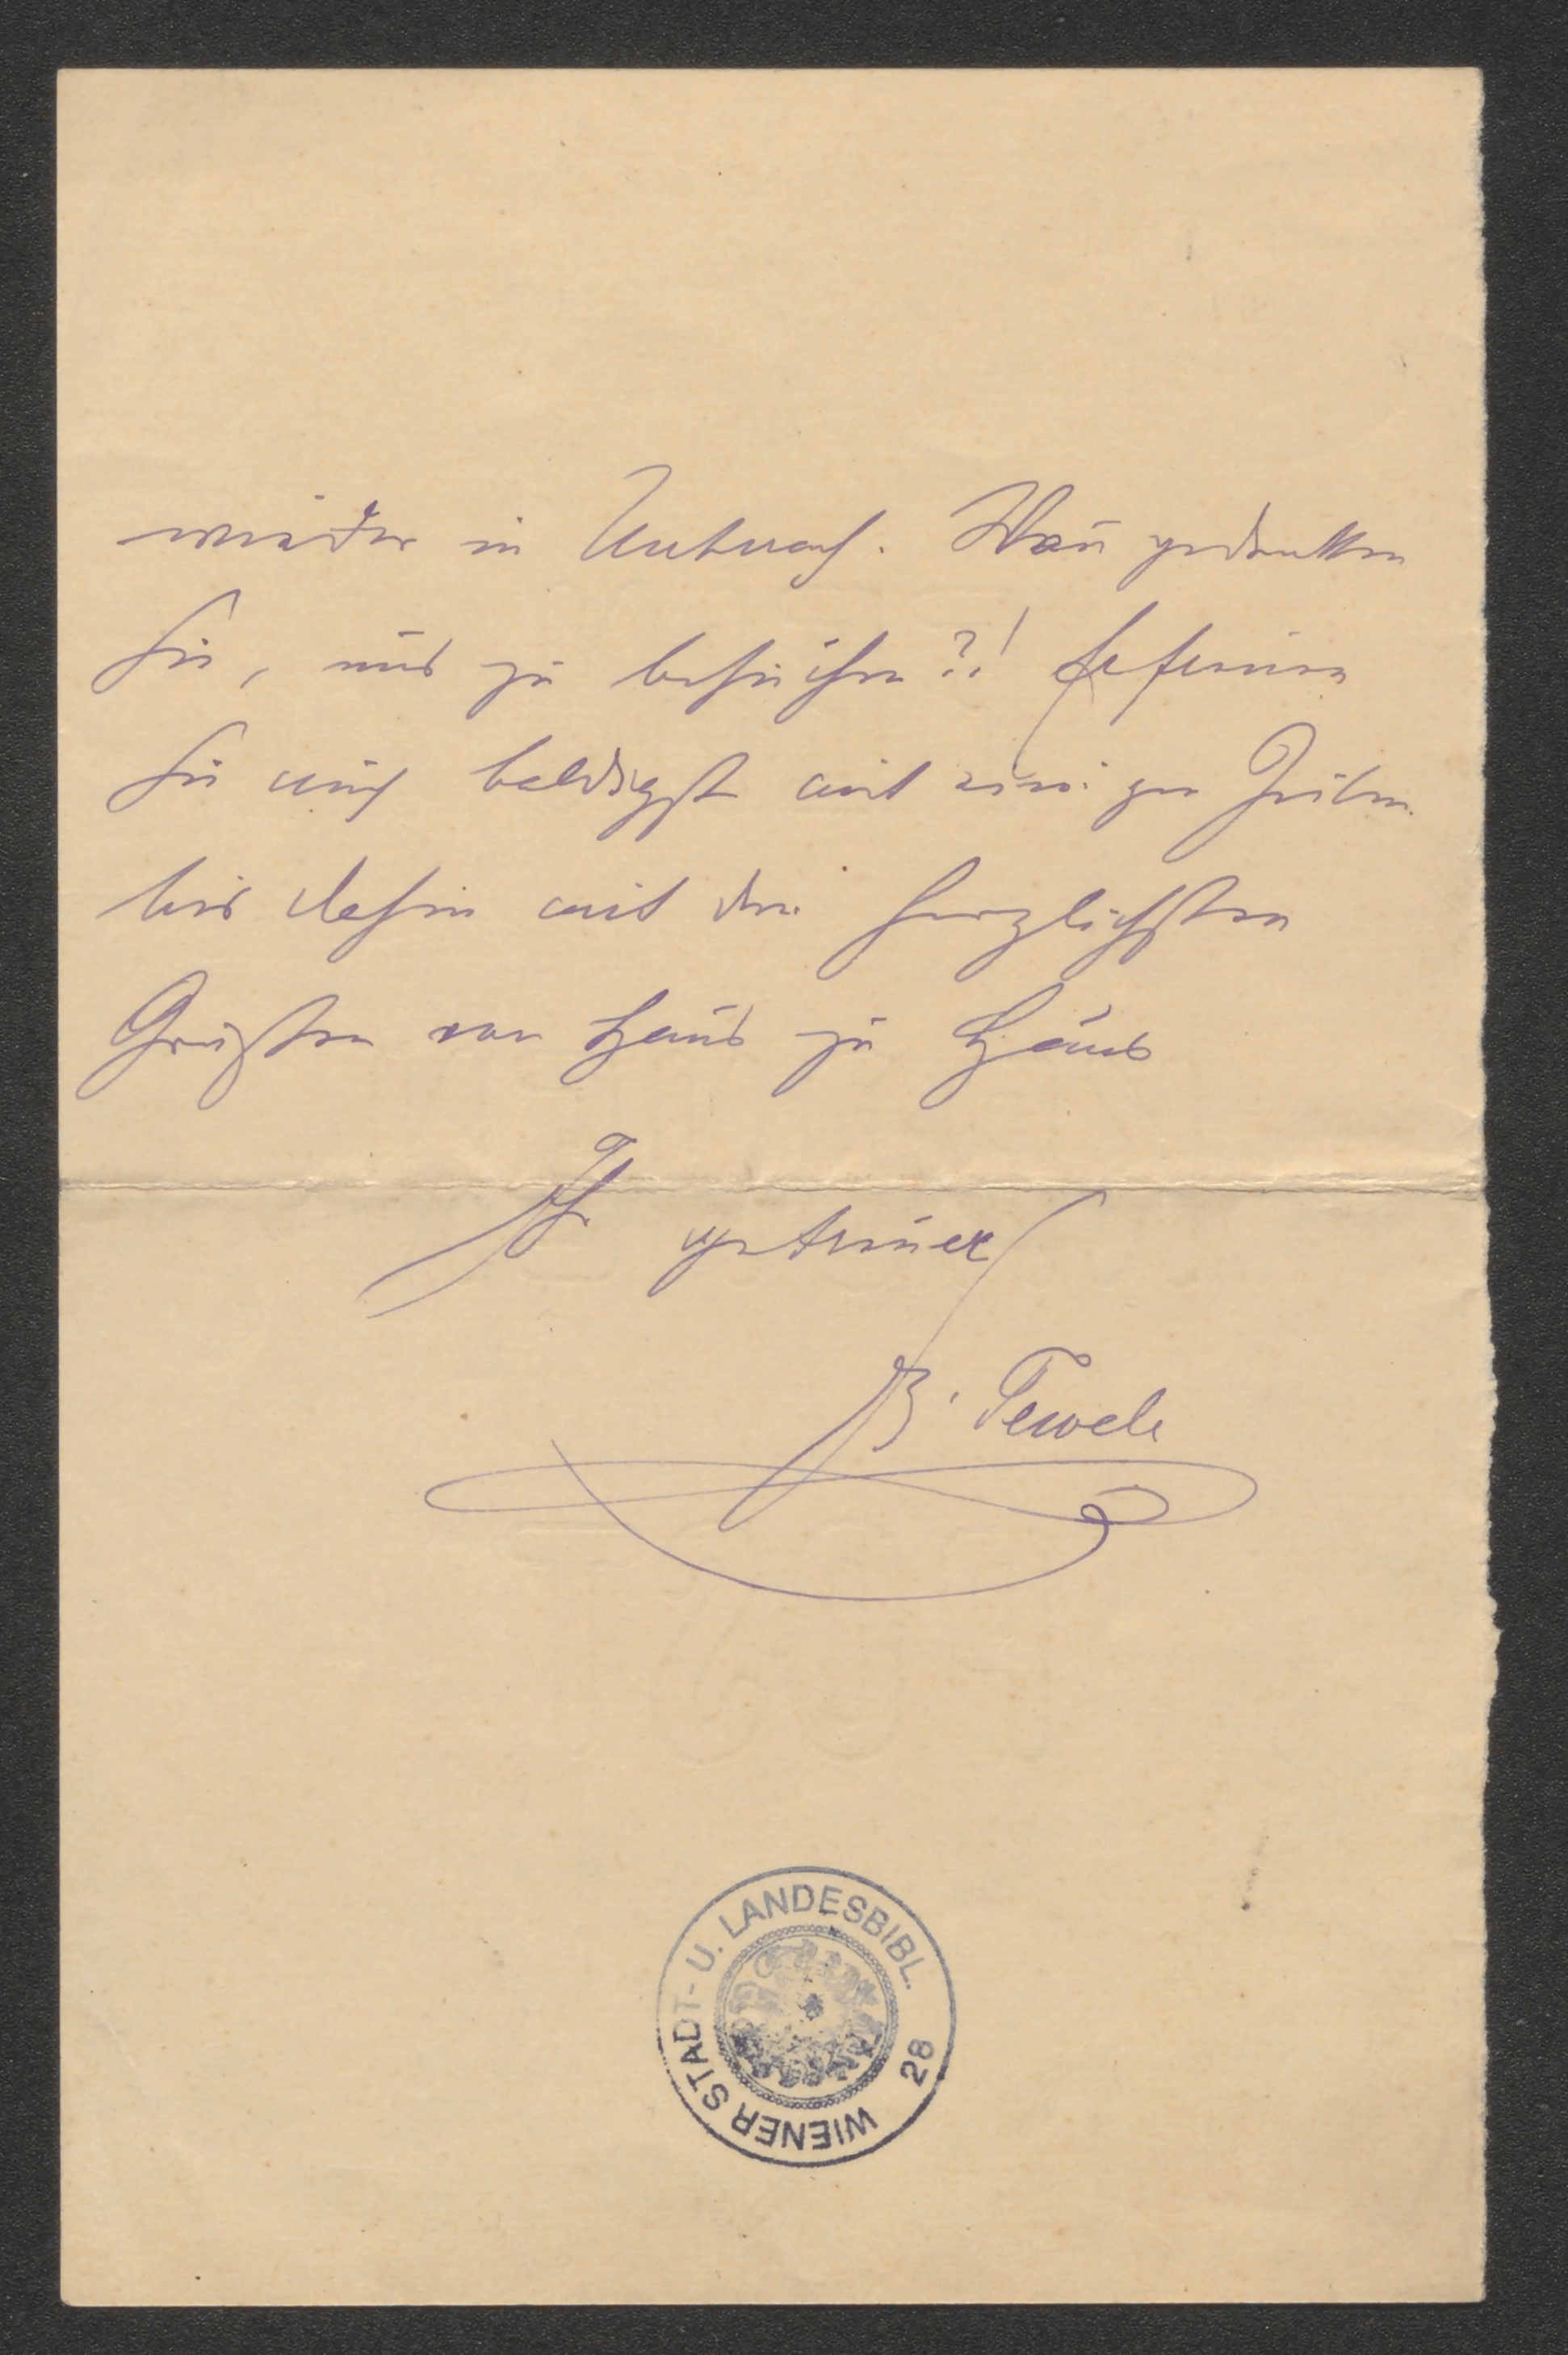 wieder in Unterach. Wañ gedenken
Sie, uns zu besuchen?! Erfreuen
Sie mich baldigst mit einigen Zeilen.
bis dahin mit den herzlichsten
Grüßen von Haus zu Haus
Ihr getreuer
Tewele
WIENER STADT- U. LANDESBIBL.
28